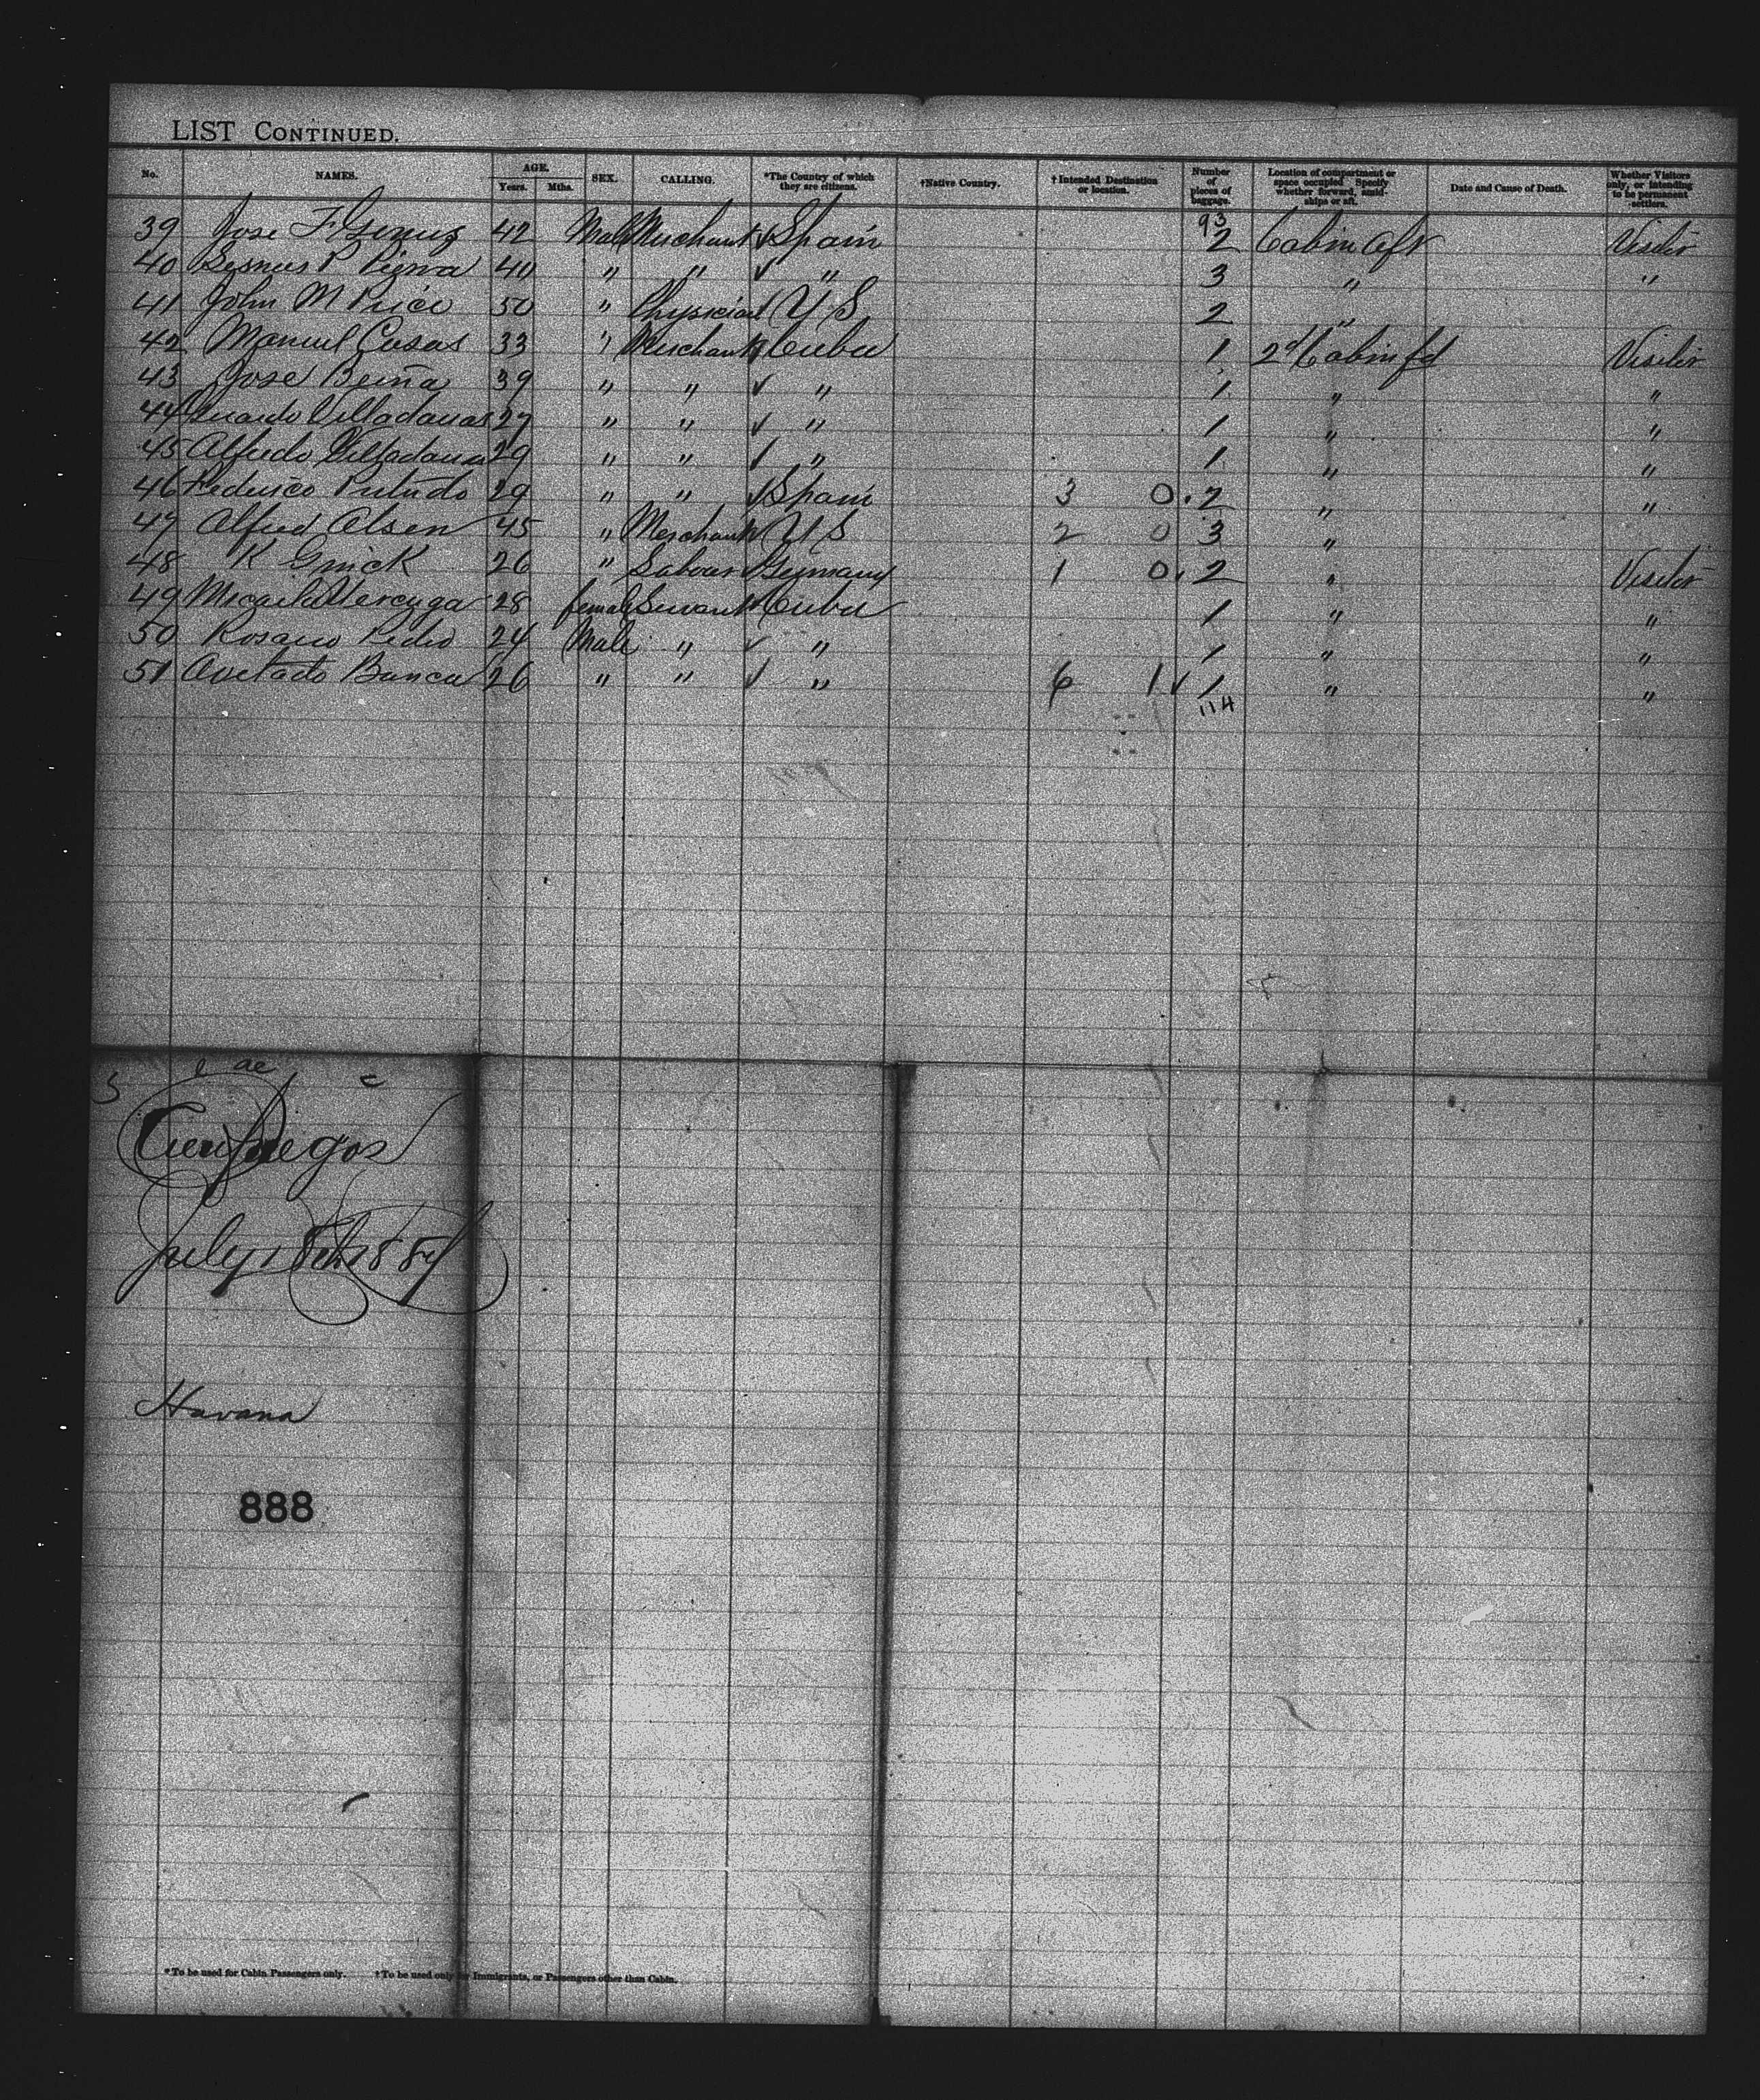 LIST CONTINUED.
No. NAMES. AGE. Years. Mths. SEX. CALLING. *The Country of which they are citizens. †Native Country. †Intended Destination or location. Number of pieces of baggage. Location of compartment or space occupied Specify whether forward, amid ships or aft. Date and Cause of Death. Whether Visitors only, or intending to be permanent settlers.
93
39 Jose F 42 Male Merchant ✓ Spain 2 Cabin Aft Visitor
40 40 " " ✓ " 3 " "
41 John M Price 50 " Physician ✓ U S 2 "
42 Manuel Casas 33 " Merchant Cuba 1 2d Cabin fd Visitor
43 Jose 39 " " ✓ " 1 " "
44 27 " " ✓ " 1 " "
45 Alfredo 29 " " ✓ " 1 " "
46 Federico 29 " " ✓ Spain 3 0. 2 " "
47 Alfred Olsen 45 " Merchant U S 2 0 3 "
48 K 26 " Labour Germany 1 0. 2 " Visitor
49 28 female Servant Cuba 1 " "
50 Pedro 24 Male " ✓ " 1 " "
51 26 " " ✓ " 6 1 ✓ 1 " "
114
Cienfuegos
Havana
888
*To be used for Cabin Passengers only. †To be used only for Immigrants, or Passengers other than Cabin.